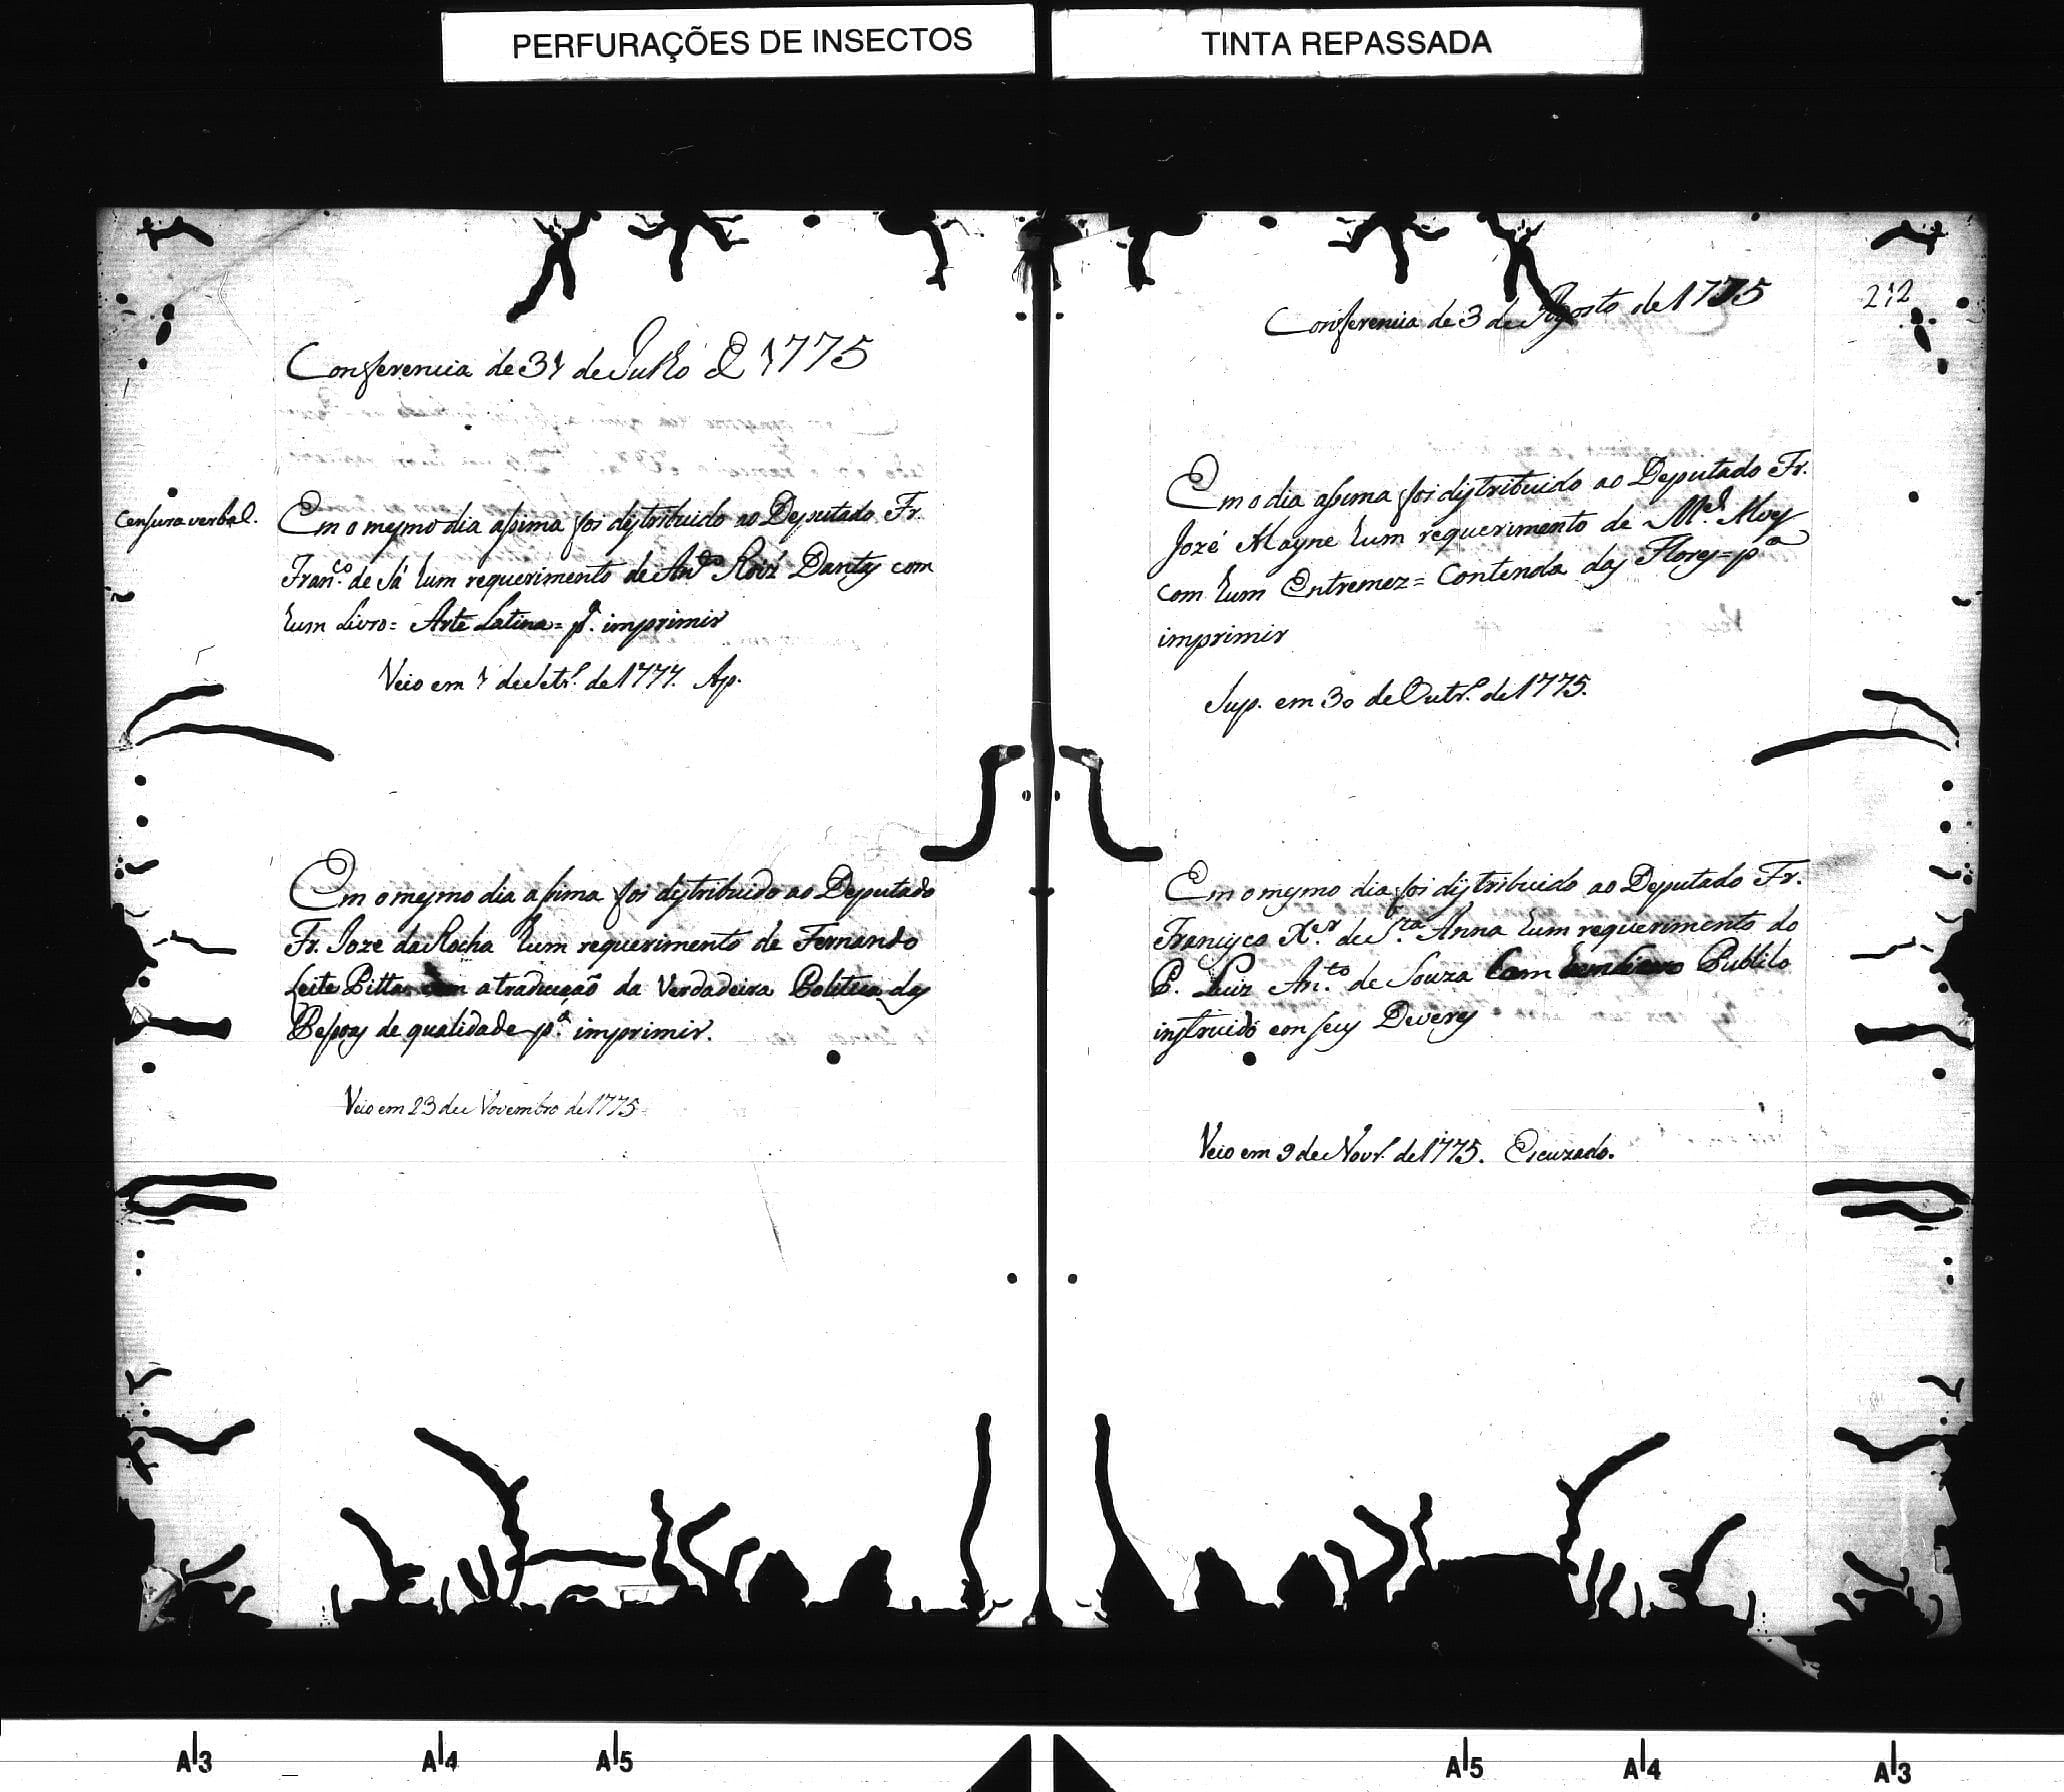 PERFURAÇÕES DE INSECTOS
TINTA REPASSADA
Conferencia de 31 de Julho de 1775
Censura verbal.
Em o mesmo dia assima foi distribuido ao Deputado Fr.
Franco. de Sá hum requerimento de Anto Roiz Dantas com
hum Livro = Arte Latina = pa. imprimir
Veio em 1 de Setr.o de 1777. Ap.
Em o mesmo dia assima foi distribuido ao Deputado
Fr. Joze da Rocha hum requerimento de Fernando
Leite Pitta com a traducçaõ da Verdadeira Politica das
Pessoas de qualidade pa. imprimir.
Veio em 23 de Novembro de 1775
212
Conferencia de 3 de Agosto de 1775
Em o dia assima foi distribuido ao Deputado Fr.
Jozé Mayne hum requerimento de Mel. Alvez
com hum Entremez = Contenda das Flores = pa
imprimir
Sup. em 30 de Outr.o de 1775.
Em o mesmo dia foi distribuido ao Deputado Fr.
Francisco Xer. de Sta. Anna hum requerimento do
P. Luiz Anto. de Souza Com hum Livro Publilo
instruido em seus Deveres
Veio em 9 de Novr.o de 1775. Escuzado.
A3 A4 A5
A5 A4 A3